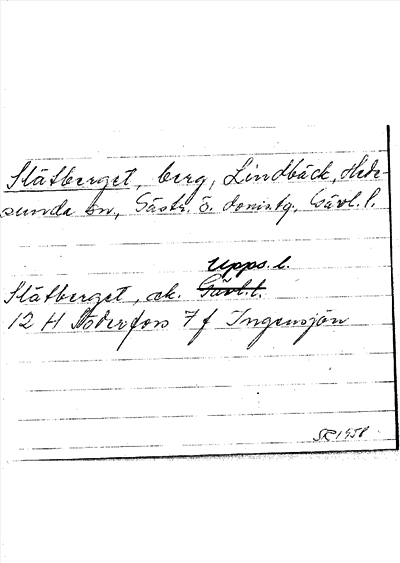 Slätberget, berg, Lindbäck, Hede-
sunda sn, Gästr. ö. domstg, Gävl. l.
Upps. l.
Slätberget, ek. Gävl. l.
12 H Söderfors 7 f Ingensjön
SR 1958